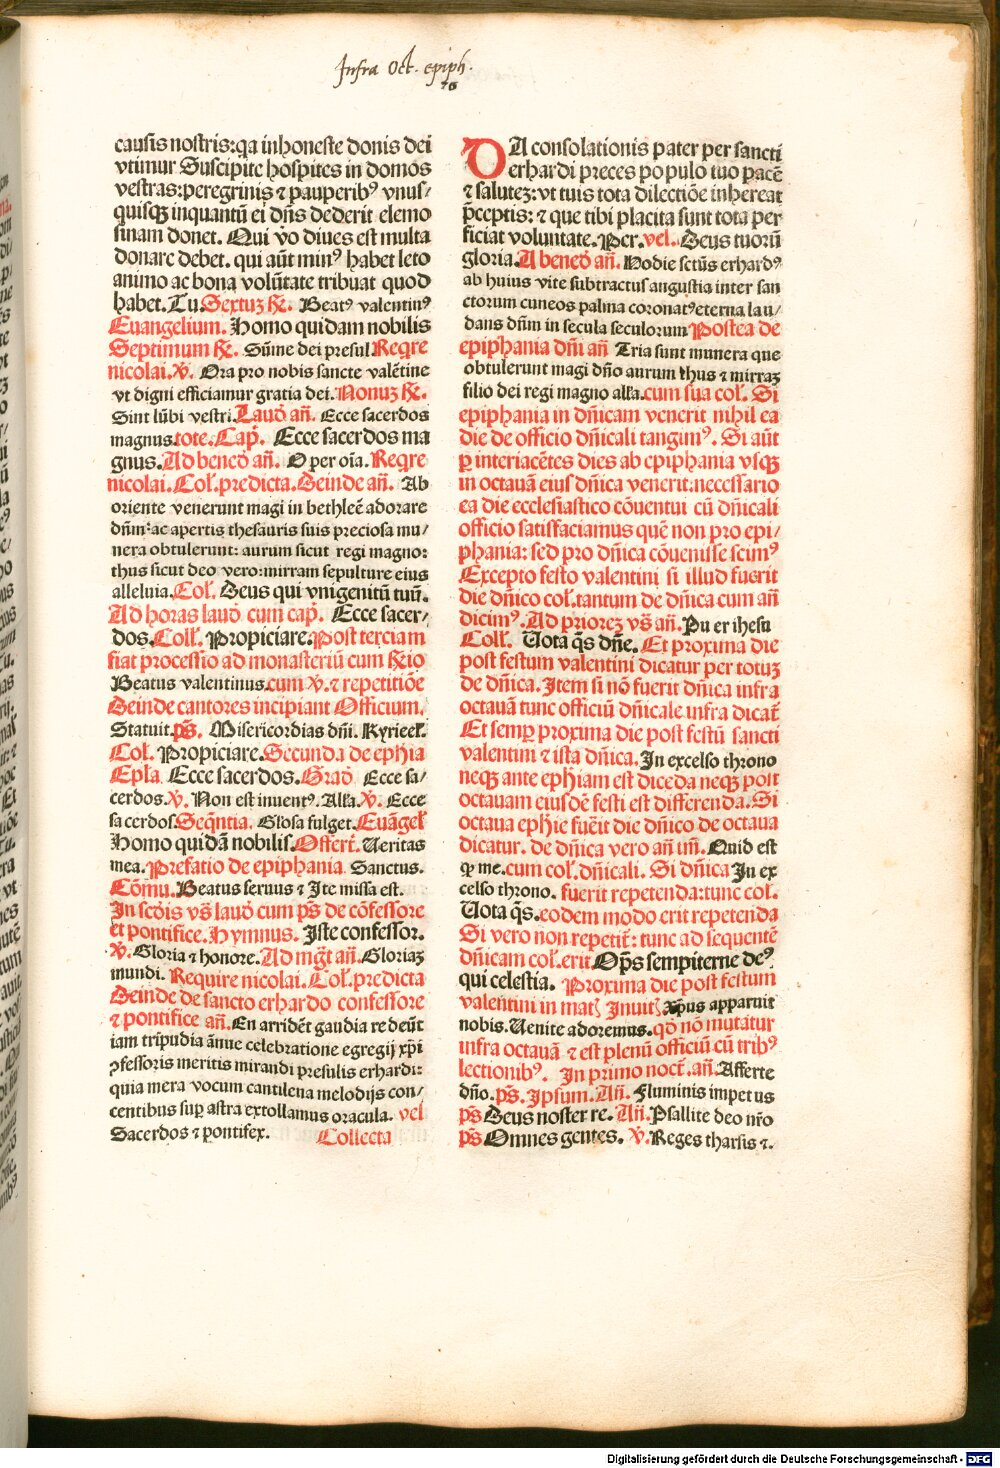 Infra Oct. epiph.
70
causis nostris:qa inhoneste donis dei
vtimur Suscipite hospites in domos
vestras:peregrinis ⁊ pauperibꝰ vnus/
quisqꝫ inquantū ei dn̄s dederit elemo
sinam donet. Qui v̇o diues est multa
donare debet. qui aūt minꝰ habet leto
animo ac bona volūtate tribuat quod
habet. Tu. Sextuꝫ ℟. Beatꝰ valentinꝰ
Euangelium. Homo quidam nobilis
Septimum ℟. Sūme dei presul Reqre
nicolai. ℣. Ora pro nobis sancte valētine
vt digni efficiamur gratia dei. Nonuꝫ ℟.
Sint lūbi vestri. Laud̓ an̄. Ecce sacerdos
magnus. tote. Cap̄. Ecce sacerdos ma
gnus. Ad bened̓ an̄. O per oīa. Reqre
nicolai. Col. predicta. Deinde an̄. Ab
oriente venerunt magi in bethleē adorare
dn̄m: ac apertis thesauris suis preciosa mu/
nera obtulerunt: aurum sicut regi magno:
thus sicut deo vero: mirram sepulture eius
alleluia. Col. Deus qui vnigenitū tuū.
Ad horas laud̓ cum cap̄. Ecce sacer/
dos. Coll. Propiciare. Post terciam
fiat processio ad monasteriū cum ℟io
Beatus valentinus. cum ℣. ⁊ repetitiōe
Deinde cantores incipiant Officium.
Statuit. ps̄. Misericordias dn̄i. Kyrieel.
Col. Propiciare. Secunda de ephia
Epla Ecce sacerdos. Grad̓ Ecce sa/
cerdos. ℣. Non est inuentꝰ. Alla. ℣. Ecce
sacerdos. Seqn̄tia. Glosa fulget. Euāgel
Homo quidā nobilis. Offert̄. Ueritas
mea. Prefatio de epiphania Sanctus.
Cōmu. Beatus seruus ⁊ Ite missa est.
In scd̓is vs̄ laud̓ cum ps̄ de cōfessore
et pontifice. Hymnus. Iste confessor.
℣. Gloria ⁊ honore. Ad mg̓t an̄. Gloriaꝫ
mundi. Require nicolai. Col. predicta
Deinde de sancto erhardo confessore
⁊ pontifice an̄. En arridēt gaudia redeūt
iam tripudia ānue celebratione egregij xp̄i
ꝯfessoris meritis mirandi presulis erhardi:
quia mera vocum cantilena melodijs con/
centibus suꝑ astra extollamus oracula. vel
Sacerdos ⁊ pontifex. Collecta
DA consolationis pater per sancti
erhardi preces populo tuo pacē
⁊ saluteꝫ: vt tuis tota dilectiōe inhereat
p̄ceptis: ⁊ que tibi placita sunt tota per
ficiat voluntate. Per. vel. Deus tuorū
gloria. A bened̓ an̄. Hodie sctūs erhardꝰ
ab huius vite subtractus angustia inter san
ctorum cuneos palma coronatꝰ eterna lau/
dans dn̄m in secula seculorum Postea de
epiphania dn̄i an̄ Tria sunt munera que
obtulerunt magi dn̄o aurum thus ⁊ mirraꝫ
filio dei regi magno alla. cum sua col. Si
epiphania in dn̄icam venerit nihil ea
die de officio dn̄icali tangimꝰ. Si aūt
ꝑ interiacētes dies ab epiphania vsqꝫ
in octauā eius dn̄ica venerit: necessario
ea die ecclesiastico cōuentui cū dn̄icali
officio satisfaciamus quē non pro epi/
phania: sed pro dn̄ica cōuenisse scimꝰ
Excepto festo valentini si illud fuerit
die dn̄ico col. tantum de dn̄ica cum an̄
dicimꝰ. Ad priorez vs̄ an̄. Puer ihesu
Coll. Uota q̄s dn̄e. Et proxima die
post festum valentini dicatur per totuꝫ
de dn̄ica. Item si nō fuerit dn̄ica infra
octauā tunc officiū dn̄icale infra dicat̄
Et semꝑ proxima die post festū sancti
valentini ⁊ ista dn̄ica. In excelso throno
neqꝫ ante ephiam est diceda neqꝫ post
octauam eiusdē festi est differenda. Si
octaua ephie fuēit die dn̄ico de octaua
dicatur. de dn̄ica vero an̄ un̄. Quid est
ꝙ me. cum col. dn̄icali. Si dn̄ica In ex
celso throno. fuerit repetenda: tunc col.
Uota q̄s. eodem modo erit repetenda
Si vero non repetit̄: tunc ad sequentē
dn̄icam col. erit Op̄s sempiterne deꝰ
qui celestia. Proxima die post festum
valentini in mat̄ Inuit̄ Xp̄us apparuit
nobis. Uenite adoremus. qd̓ nō mutatur
infra octauā ⁊ est plenū officiū cū tribꝰ
lectionibꝰ. In primo noct̄. an̄. Afferte
dn̄o. ps̄. Ipsum. An̄. Fluminis impetus
ps̄ Deus noster re. An̄. Psallite deo nr̄o
ps̄ Omnes gentes. ℣. Reges tharsis ⁊.
Digitalisierung gefördert durch die Deutsche Forschungsgemeinschaft - DFG